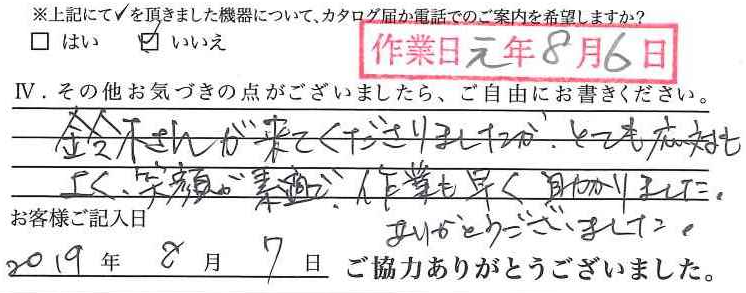 ※上記にて✓を頂きました機器について、カタログ届か電話でのご案内を希望しますか？
□ はい ☑ いいえ
作業日元年8月6日
Ⅳ．その他お気づきの点がございましたら、ご自由にお書きください。
鈴木さんが来てくださりましたが、とても応対も
よく、笑顔が素適で、作業も早く助かりました。
ありがとうございました。
お客様ご記入日
2019年8月7日 ご協力ありがとうございました。